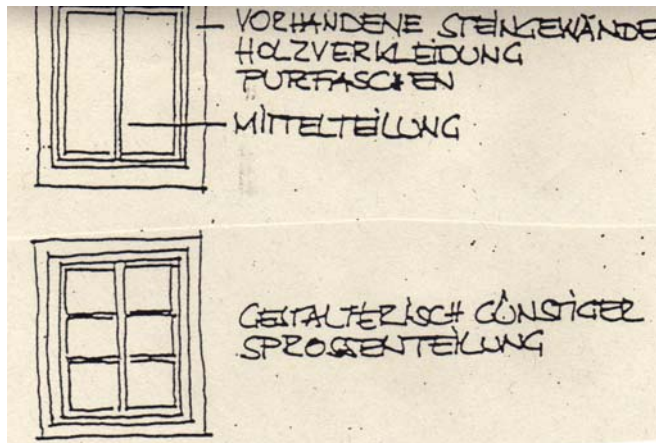 VORHANDENE STEINGEWÄNDE
HOLZVERKLEIDUNG
PUTZFASCHEN
MITTELTEILUNG
GESTALTERISCH GÜNSTIGER
SPROSSENTEILUNG